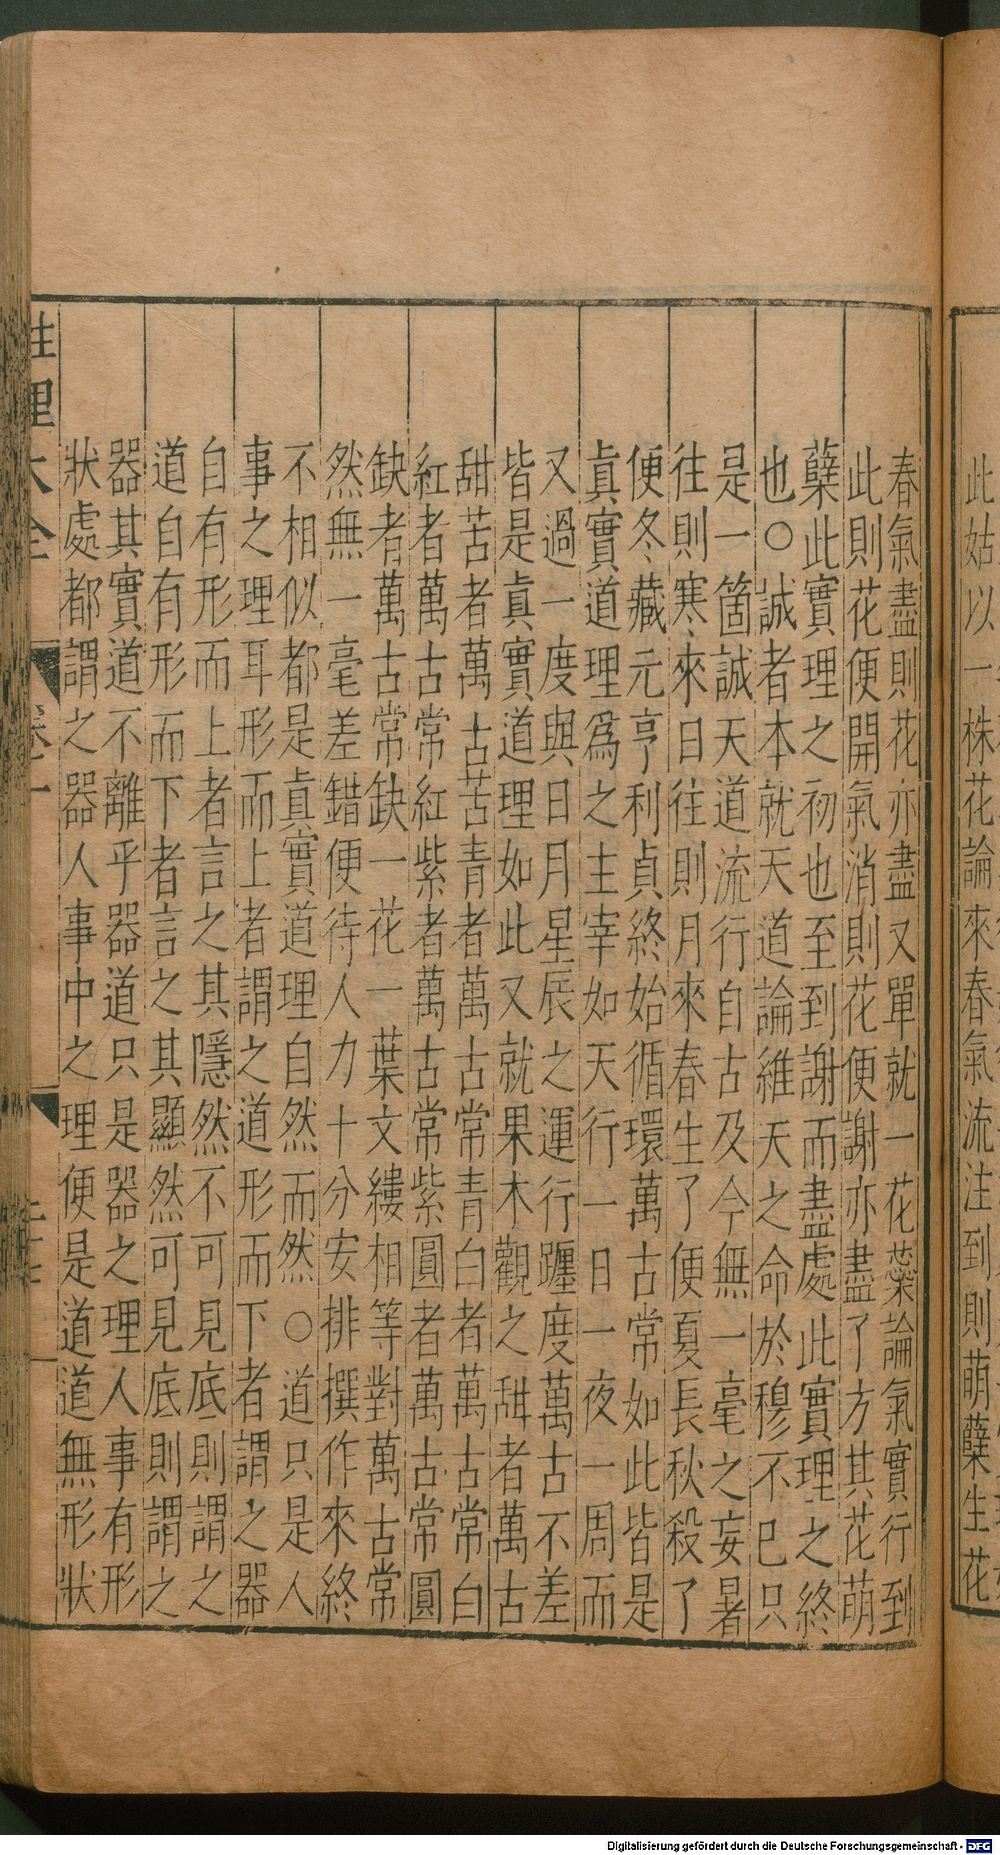 此姑以一株花論來春氣流注到則萌蘖生花
春氣盡則花亦盡又單就一花蘂論氣實行到
此則花便開氣消則花便謝亦盡了方其花萌
蘖此實理之初也至到謝而盡處此實理之終
也○誠者本就天道論維天之命於穆不已只
是一箇誠天道流行自古及今無一毫之妄暑
往則寒來日往則月來春生了便夏長秋殺了
便冬藏元亨利貞終始循環萬古常如此皆是
眞實道理爲之主宰如天行一日一夜一周而
又過一度與日月星辰之運行躔度萬古不差
皆是眞實道理如此又就果木觀之甜者萬古
甜苦者萬古苦青者萬古常青白者萬古常白
紅者萬古常紅紫者萬古常紫圓者萬古常圓
缺者萬古常缺一花一葉文縷相等對萬古常
然無一毫差錯便待人力十分安排撰作來終
不相似都是眞實道理自然而然○道只是人
事之理耳形而上者謂之道形而下者謂之器
自有形而上者言之其隱然不可見底則謂之
道自有形而下者言之其顯然可見底則謂之
器其實道不離乎器道只是器之理人事有形
狀處都謂之器人事中之理便是道道無形狀
性理大全 卷
Digitalisierung gefördert durch die Deutsche Forschungsgemeinschaft - DFG